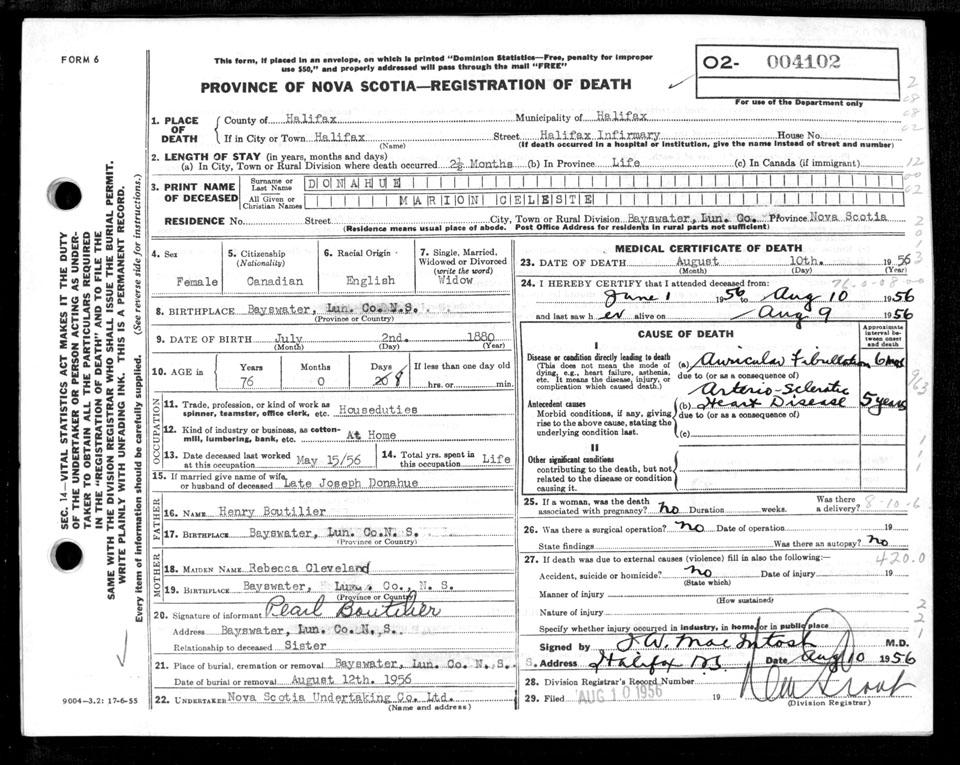 FORM 6
This form, if placed in an envelope, on which is printed "Dominion Statistics—Free, penalty for improper
use $50," and properly addressed will pass through the mail "FREE"
PROVINCE OF NOVA SCOTIA—REGISTRATION OF DEATH
O2- 004102
For use of the Department only
1. PLACE OF DEATH
County of Halifax Municipality of Halifax
If in City or Town Halifax Street Halifax Infirmary House No.
(Name) (If death occurred in a hospital or institution, give the name instead of street and number)
2. LENGTH OF STAY (in years, months and days)
(a) In City, Town or Rural Division where death occurred 2½ Months (b) In Province Life (c) In Canada (if immigrant)
3. PRINT NAME OF DECEASED
Surname or Last Name DONAHUE
All Given or Christian Names MARION CELESTE
RESIDENCE No. Street City, Town or Rural Division Bayswater, Lun. Co. Province Nova Scotia
(Residence means usual place of abode. Post Office Address for residents in rural parts not sufficient)
4. Sex Female
5. Citizenship (Nationality) Canadian
6. Racial Origin English
7. Single, Married, Widowed or Divorced (write the word) Widow
8. BIRTHPLACE Bayswater, Lun. Co. N.S.
(Province or Country)
9. DATE OF BIRTH July 2nd. 1880
(Month) (Day) (Year)
10. AGE in Years 76 Months 0 Days 8 If less than one day old hrs. or min.
OCCUPATION
11. Trade, profession, or kind of work as spinner, teamster, office clerk, etc. Houseduties
12. Kind of industry or business, as cotton-mill, lumbering, bank, etc. At Home
13. Date deceased last worked at this occupation May 15/56
14. Total yrs. spent in this occupation Life
15. If married give name of wife or husband of deceased Late Joseph Donahue
FATHER
16. NAME Henry Boutilier
17. BIRTHPLACE Bayswater, Lun. Co.N.S.
(Province or Country)
MOTHER
18. MAIDEN NAME Rebecca Cleveland
19. BIRTHPLACE Bayswater, Lun. Co., N. S.
(Province or Country)
20. Signature of informant Pearl Boutilier
Address Bayswater, Lun. Co. N.S.
Relationship to deceased Sister
21. Place of burial, cremation or removal Bayswater, Lun. Co. N.S.
Date of burial or removal August 12th. 1956
22. UNDERTAKER Nova Scotia Undertaking Co. Ltd.
(Name and address)
9004—3.2: 17-6-55
MEDICAL CERTIFICATE OF DEATH
23. DATE OF DEATH August 10th. 1956
(Month) (Day) (Year)
24. I HEREBY CERTIFY that I attended deceased from:
June 1 1956 to Aug 10 1956
and last saw her alive on Aug 9 1956
CAUSE OF DEATH
Approximate interval between onset and death
I
Disease or condition directly leading to death
(This does not mean the mode of dying, e.g., heart failure, asthenia, etc. It means the disease, injury, or complication which caused death.)
(a) Auricular Fibrillation 6 mos
due to (or as a consequence of)
Antecedent causes
Morbid conditions, if any, giving rise to the above cause, stating the underlying condition last.
Arterio-Sclerotic
(b) Heart Disease 5 years
due to (or as a consequence of)
(c)
II
Other significant conditions
contributing to the death, but not related to the disease or condition causing it.
25. If a woman, was the death associated with pregnancy? no Duration weeks. Was there a delivery?
8-10-6
26. Was there a surgical operation? no Date of operation 19
State findings Was there an autopsy? no
27. If death was due to external causes (violence) fill in also the following:
420.0
Accident, suicide or homicide? no Date of injury 19
(State which)
Manner of injury
(How sustained)
Nature of injury
Specify whether injury occurred in industry, in home, or in public place
Signed by J W. MacIntosh M.D.
Address Halifax N.S. Date Aug 10 1956
28. Division Registrar's Record Number
29. Filed AUG 10 1956 19
(Division Registrar)
SEC. 14—VITAL STATISTICS ACT MAKES IT THE DUTY
OF THE UNDERTAKER OR PERSON ACTING AS UNDER-
TAKER TO OBTAIN ALL THE PARTICULARS REQUIRED
IN THE "REGISTRATION OF DEATH" AND TO FILE THE
SAME WITH THE DIVISION REGISTRAR WHO SHALL ISSUE THE BURIAL PERMIT.
WRITE PLAINLY WITH UNFADING INK. THIS IS A PERMANENT RECORD.
Every item of information should be carefully supplied. (See reverse side for instructions.)